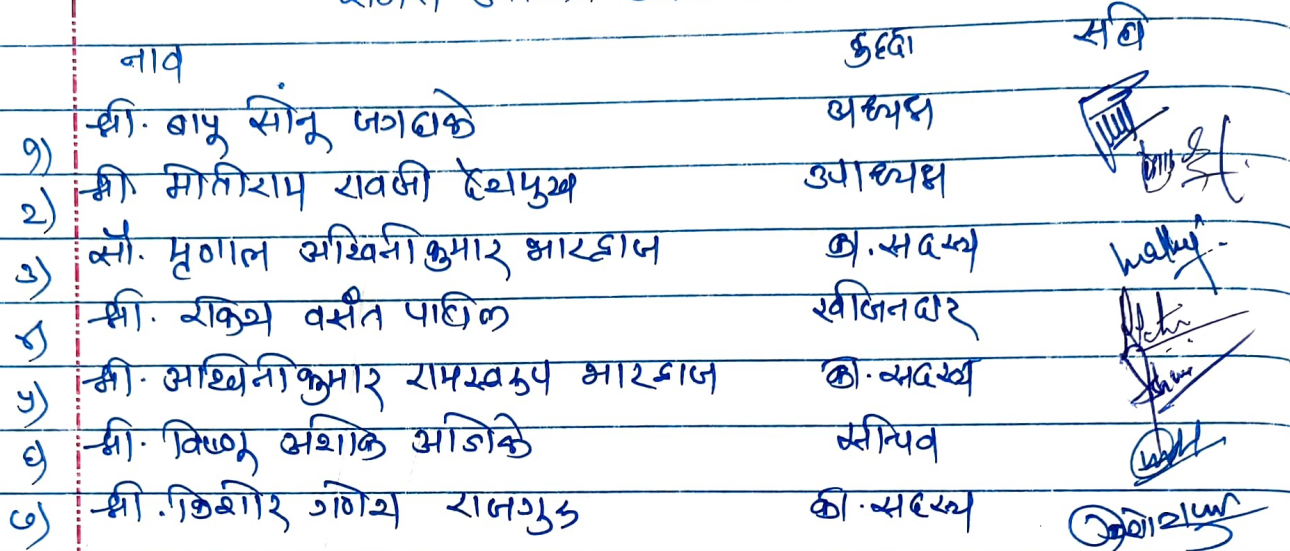 नाव हुद्दा सही
१) श्री. बापू सोनू जगदाळे अध्यक्ष
२) श्री मोतीराम रावजी देशमुख उपाध्यक्ष
३) सौ. मृणाल अश्विनीकुमार भारद्वाज का. सदस्य
४) श्री. राकेश वसंत पाटील खजिनदार
५) श्री. अश्विनीकुमार रामस्वरूप भारद्वाज का. सदस्य
६) श्री. विष्णू अशोक सचिव
७) श्री. किशोर गणेश राजगुरु का. सदस्य